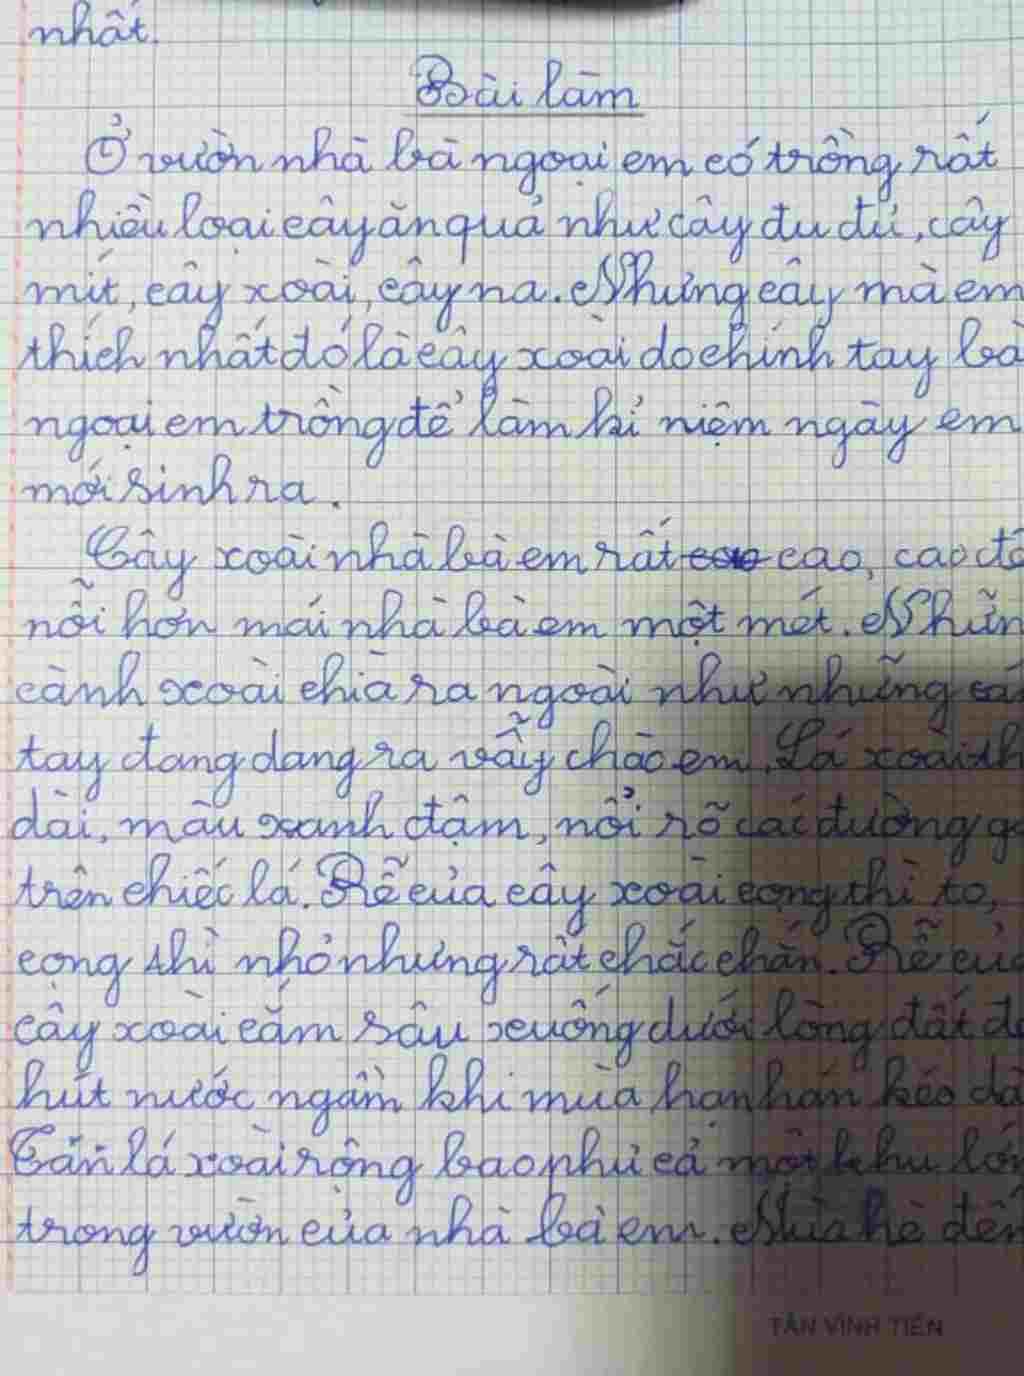 nhất.
Bài làm
Ở vườn nhà bà ngoại em có trồng rất
nhiều loại cây ăn quả như cây đu đủ, cây
mít, cây xoài, cây na. Nhưng cây mà em
thích nhất đó là cây xoài do chính tay bà
ngoại em trồng để làm kỉ niệm ngày em
mới sinh ra.
Cây xoài nhà bà em rất cao, cao đế
nỗi hơn mái nhà bà em một mét. Nhữn
cành xoài chìa ra ngoài như những cá
tay đang dang ra vẫy chào em. Lá xoài th
dài, màu xanh đậm, nổi rõ các đường g
trên chiếc lá. Rễ của cây xoài cọng thì to,
cọng thì nhỏ nhưng rất chắc chắn. Rễ củ
cây xoài cắm sâu xuống dưới lòng đất đ
hút nước ngầm khi mùa hạn hán kéo dà
Tán lá xoài rộng bao phủ cả một khu lớn
trong vườn của nhà bà em. Mùa hè đến
TÂN VĨNH TIẾN